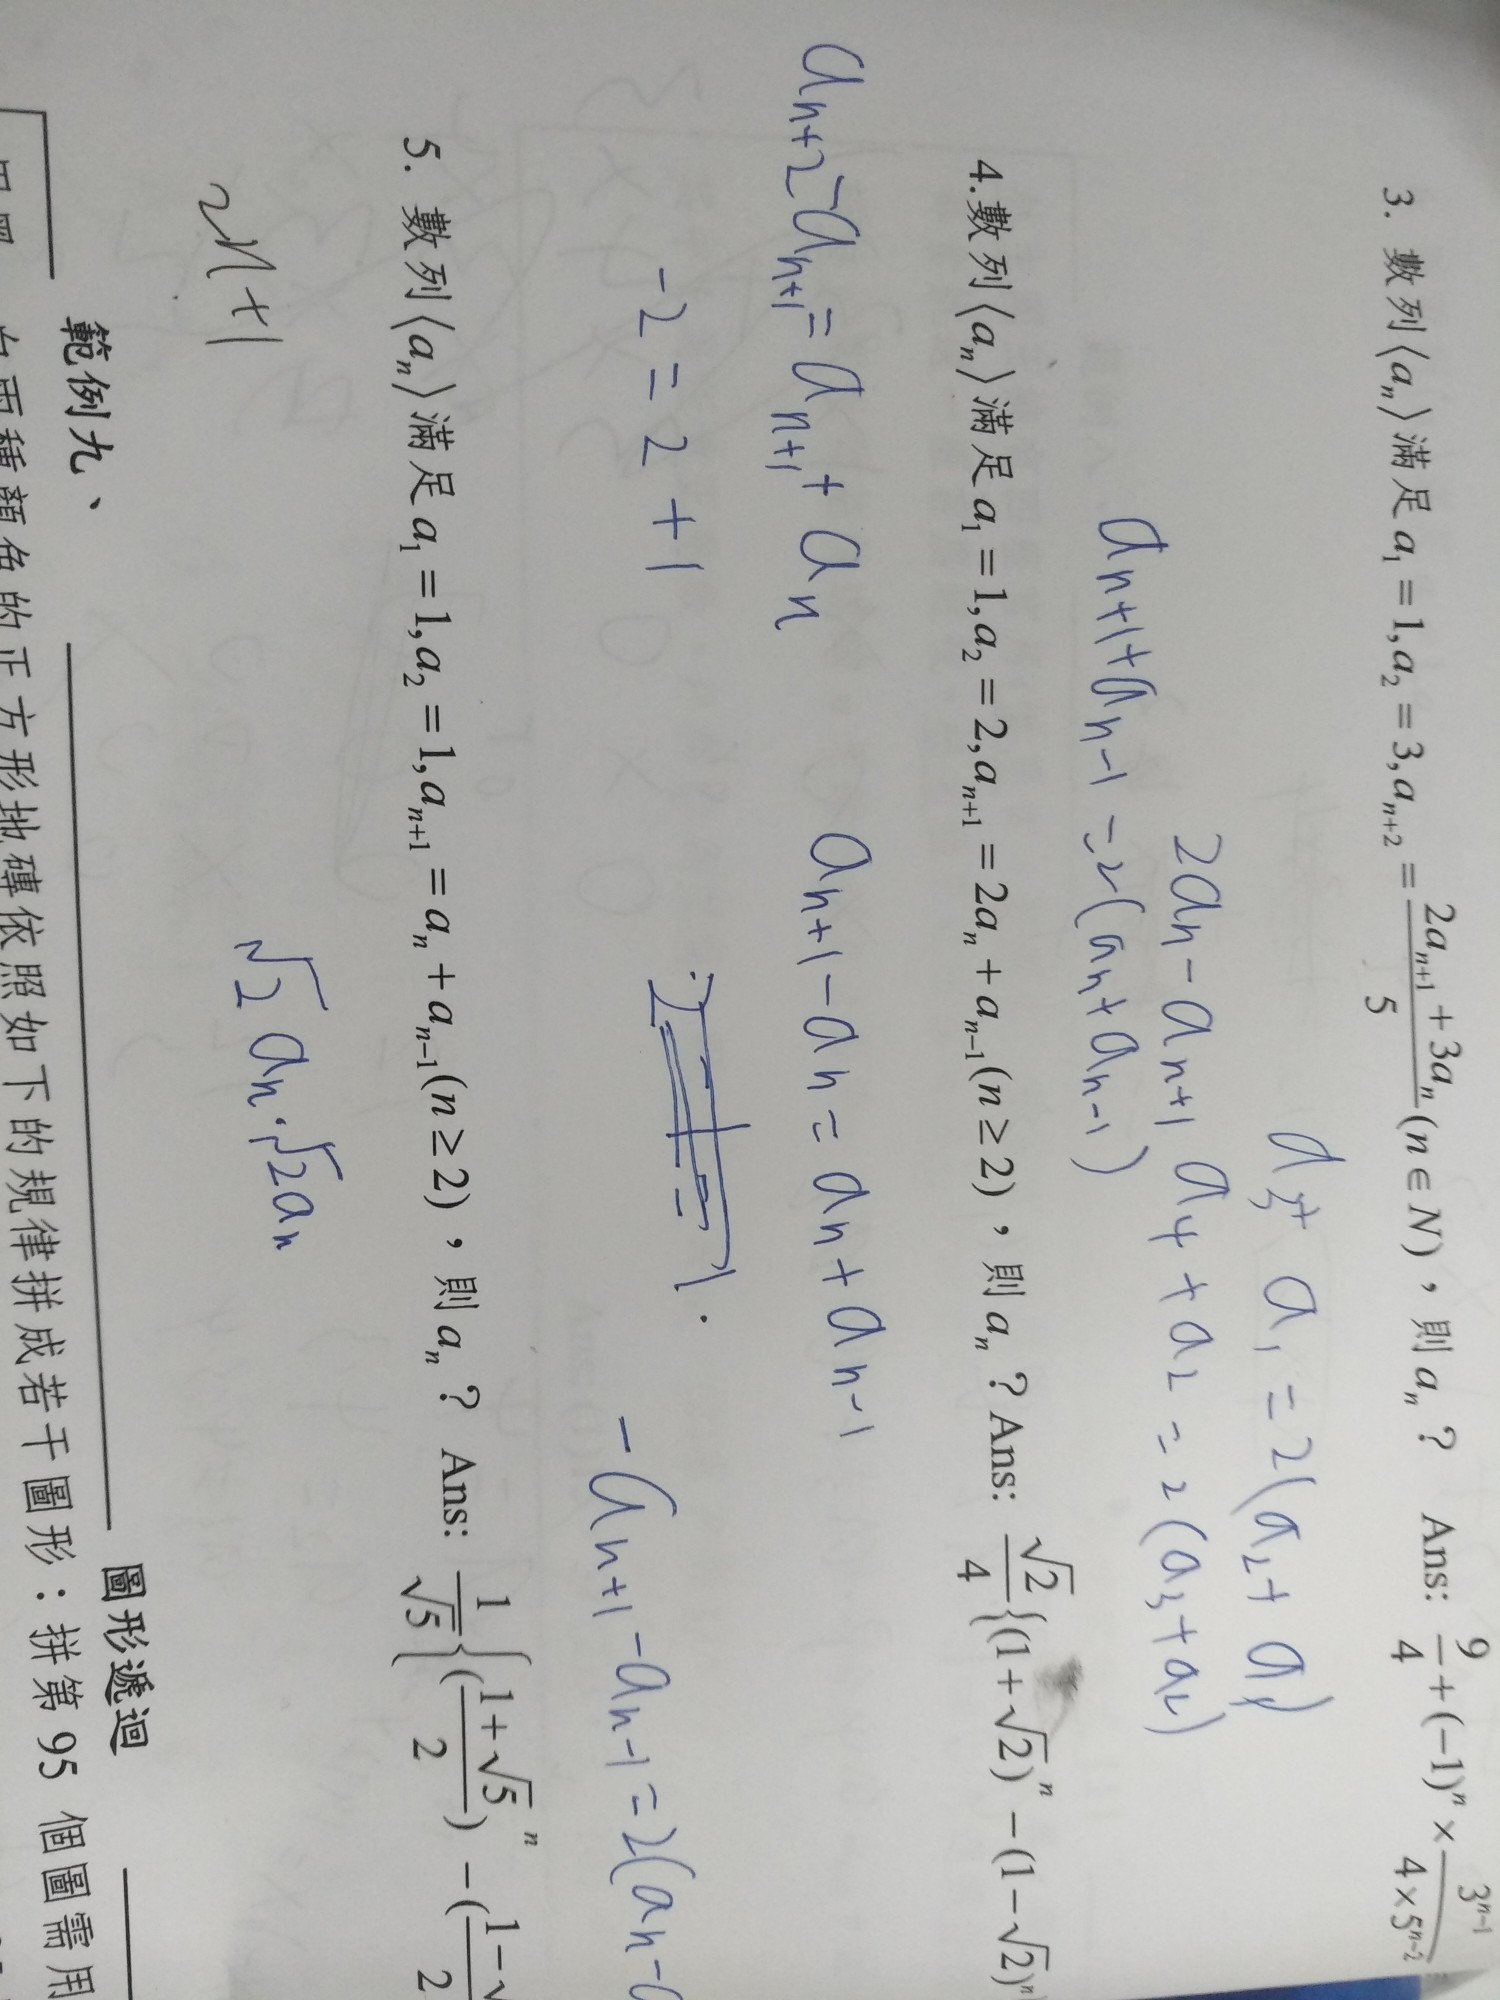 3. 數列⟨aₙ⟩滿足 a₁ = 1, a₂ = 3, aₙ₊₂ = (2aₙ₊₁ + 3aₙ)/5 (n ∈ N)，則 aₙ ? Ans: 9/4 + (−1)ⁿ × 3ⁿ⁻¹/(4×5ⁿ⁻²)
a₃+ a₁ = 2(a₂ + a₁)
2aₙ − aₙ₊₁ a₄ + a₂ = 2(a₃ + a₂)
aₙ₊₁ + aₙ₋₁ = 2(aₙ + aₙ₋₁)
4. 數列⟨aₙ⟩滿足 a₁ = 1, a₂ = 2, aₙ₊₁ = 2aₙ + aₙ₋₁ (n ≥ 2)，則 aₙ ? Ans: √2/4{(1+√2)ⁿ − (1−√2)ⁿ
aₙ₊₂ − aₙ₊₁ = aₙ₊₁ + aₙ aₙ₊₁ − aₙ = aₙ + aₙ₋₁
-2 = 2 + 1
− aₙ₊₁ − aₙ₋₁ = 2(aₙ −
5. 數列⟨aₙ⟩滿足 a₁ = 1, a₂ = 1, aₙ₊₁ = aₙ + aₙ₋₁ (n ≥ 2)，則 aₙ ? Ans: 1/√5{((1+√5)/2)ⁿ − (1−√/2
2n+1 √2 aₙ · √2aₙ
範例九、 圖形遞迴
白兩種顏色的正方形地磚依照如下的規律拼成若干圖形：拼第 95 個圖需用